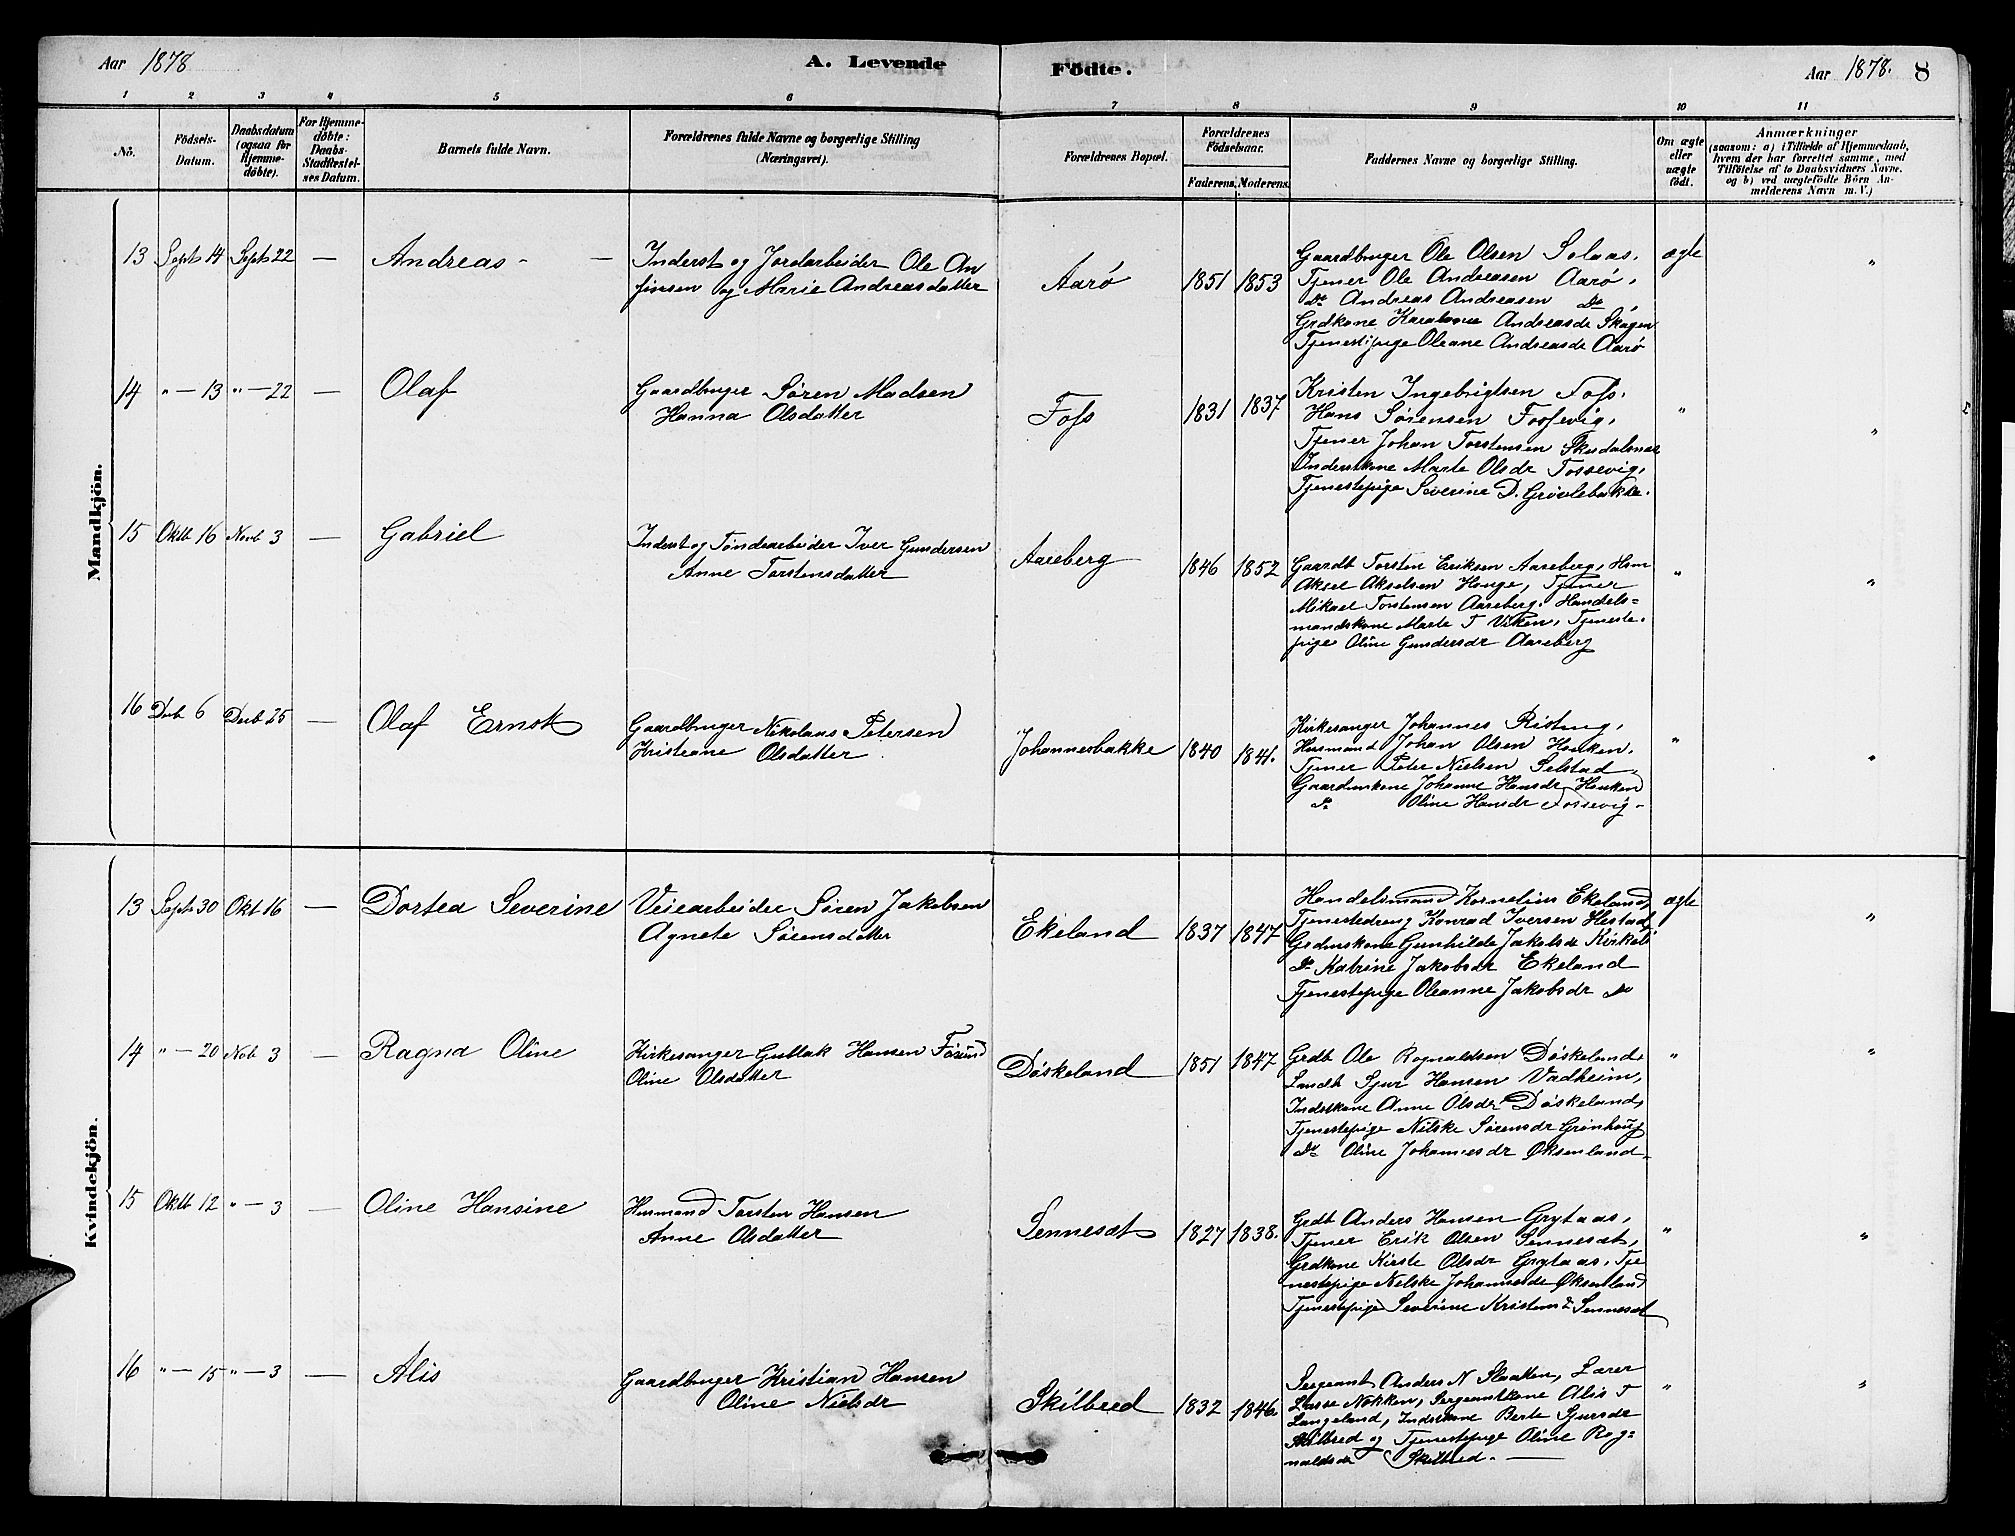 Aar 1878
A. Levende
Födte.
Aar 1878. 8
1 2 3 4 5 6 7 8 9 10 11
No.
Födsels-Datum.
Daabsdatum (ogsaa for Hjemmedöbte).
For Hjemmedöbte: Daabs-Stadfæstelses Datum.
Barnets fulde Navn.
Forældrenes fulde Navne og borgerlige Stilling (Næringsvei).
Forældrenes Bopæl.
Forældrenes Födselsaar.
Faderens. Moderens.
Faddernes Navne og borgerlige Stilling.
Om ægte eller uægte födt.
Anmærkninger
(saasom: a) i Tilfælde af Hjemmedaab,
hvem der har forrettet samme, med
Tilföielse af to Daabsvidners Navne.
og b) ved uægtefödte Börn An-
melderens Navn m. V.)
Mandkjön.
13 Sept 14 Sept 22 — Andreas - —
Inderst og Jordarbeider Ole An
finsen og Marie Andreasdatter
Aarø 1851 1853
Gaardbruger Ole Olsen Solaas.
Tjener Ole Andreasen Aarø,
do Andreas Andreasen do
Grdkone Andreasdr Skagen
Tjenestepige Oleane Andreasdr Aarø
ægte "
14 " — 13 " — 22 — Olaf
Gaardbruger Søren Madsen
Hanna Olsdatter
Foss 1831 1837
Kristen Ingebrigtsen Foss.
Hans Sørensen Fossevig,
Tjener Johan Torstensen
Inderstkone Marte Olsdr Fossevig,
Tjenestepige Severine D. Grøvlebakke.
" "
15 Oktb 16 Novb 3 — Gabriel
Inderst og Tøndearbeider Iver Gundersen
Anne Torstensdatter
Aareberg 1846 1852
Gaardb Torsten Eriksen Aareberg, Hsm
Aksel Akselsen Hauge, Tjener
Mikael Torstensen Aareberg. Handels=
mandskone Marte T Viken, Tjeneste-
pige Oline Gundersdr Aareberg
" "
16 Decb 6 Decb 25 — Olaf Ernst
Gaardbruger Nikolaus Petersen
Kristiane Olsdatter
Johannesbakke 1840 1841.
Kirkesanger Johannes Risting,
Husmand Johan Olsen Henken.
Tjener Peter Nielsen Selstad
Gaardmskone Johanne Hansdr Henken
do Oline Hansdr Fossevig -
" "
Kvindekjön.
13 Sept 30 Okt 16 — Dortea Severine
Veiearbeider Søren Jakobsen
Agnete Sørensdatter
Ekeland 1837 1847
Handelsmand Kornelius Ekeland,
Tjenestedreng Konrad Iversen Hestad
Grdmskone Gunhilde Jakobsdr Kirkeb
do Katrine Jakobsdr Ekeland
Tjenestepige Oleanne Jakobsdr do
ægte "
14 " — 20 Nob 3 — Ragna Oline
Kirkesanger Guttak Hansen Føsund
Oline Olsdatter
Døskeland 1851 1847
Grdb Ole Rognaldsen Døskeland,
Landh Sjur Hansen Vadheim,
Indstkone Anne Olsdr Døskeland,
Tjenestepige Nilske Sørensdr Grønhoug
do Oline Johannesdr Øksenland-
" "
15 Oktb 12 " — 3 — Oline Hansine
Husmand Torsten Hansen
Anne Olsdatter
Sennesæt 1827 1838.
Grdb Anders Hansen Grytaas,
Tjener Erik Olsen Sennesæt,
Grdkone Kirste Olsdr Grytaas, Tje
nestepige Nilske Johannesdr Øksenland
Tjenestepige Severine Kristensdr Sennesæt
" "
16 " — 15 " — 3 — Alis
Gaardbruger Kristian Hansen
Oline Nielsdr
Skilbred 1832 1846
Sergeant Anders N Slaatten, Lærer
Lasse Nokken, Sergeantkone Alis T
Langeland, Indstkone Berte Sjursdr
Skilbred og Tjenestepige Oline Rog=
naldsdr Skilbred. —
" "